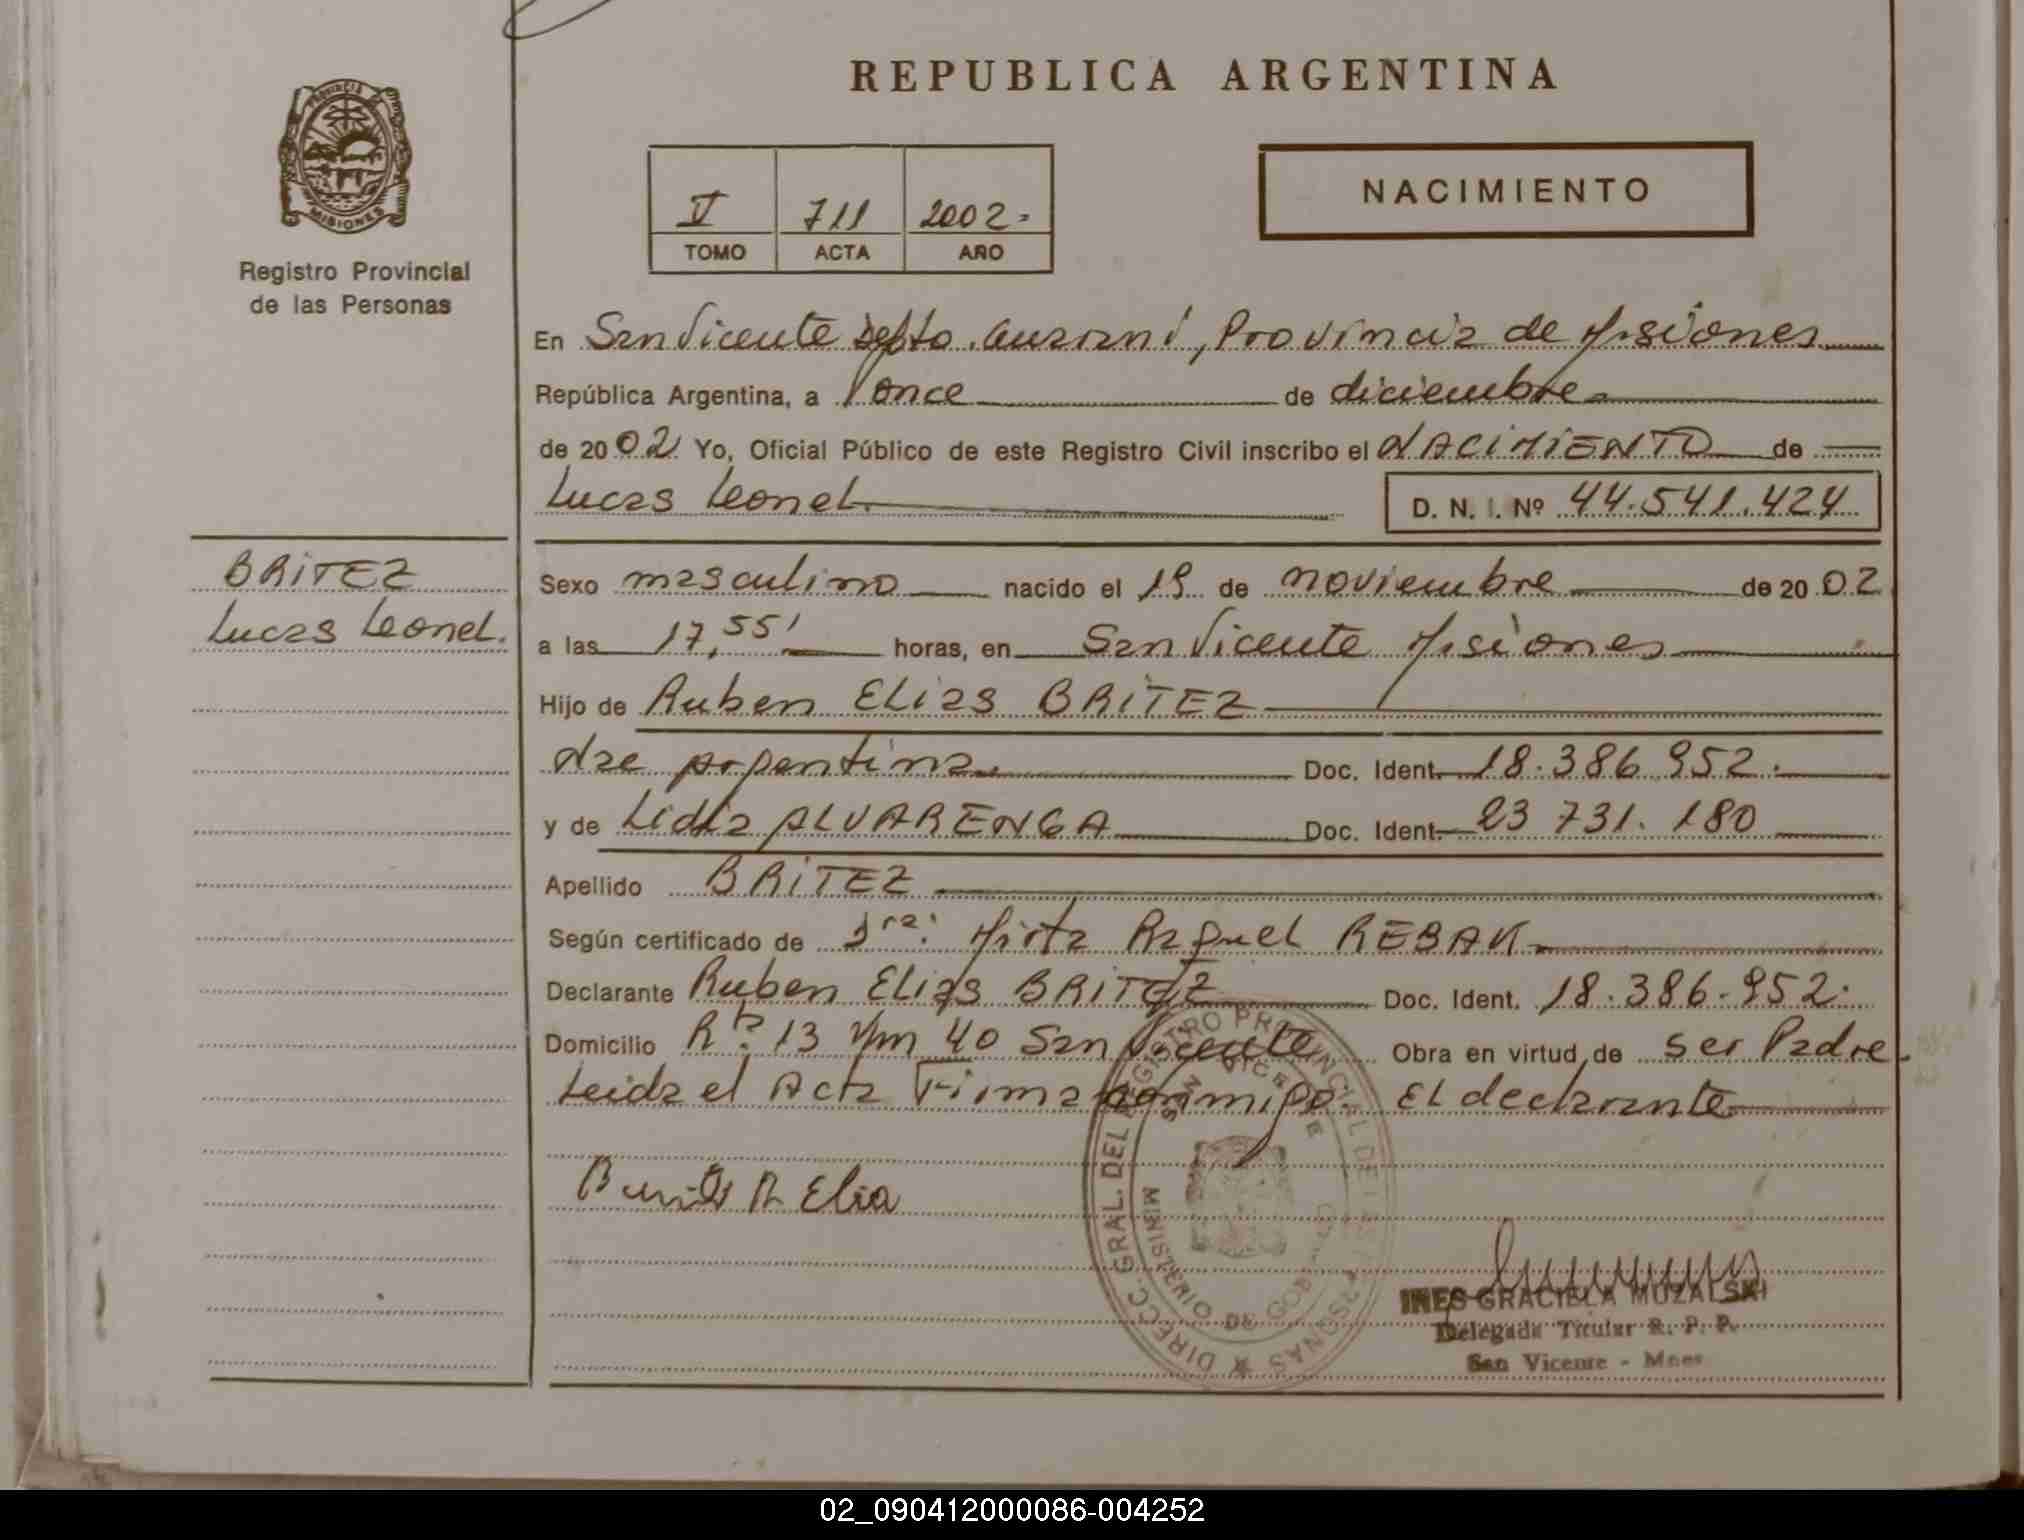 REPUBLICA ARGENTINA
PROVINCIA DE
MISIONES
Registro Provincial
de las Personas
V 711 2002.
TOMO ACTA AÑO
NACIMIENTO
En San Vicente depto. Guarani, Provincia de Misiones
República Argentina, a once de diciembre
de 2002 Yo, Oficial Público de este Registro Civil inscribo el NACIMIENTO de
Lucas Leonel. D. N. I. Nº 44.541.424
BRITEZ
Lucas Leonel.
Sexo masculino nacido el 19 de noviembre de 2002
a las 17,55' horas, en San Vicente Misiones
Hijo de Ruben Elias BRITEZ
Nac argentina. Doc. Ident. 18.386.952.
y de Lidia ALVARENGA Doc. Ident. 23 731.180
Apellido BRITEZ
Según certificado de Mirta Raquel REBAK
Declarante Ruben Elias BRITEZ Doc. Ident. 18.386.952.
Domicilio Rta. 13 Km 40 San Vicente Obra en virtud de ser Padre.
Leida el Acta Firma conmigo. El declarante
R Elia
DIRECC. GRAL. DEL REGISTRO PROVINCIAL DE LAS PERSONAS
SAN VICENTE
MINISTERIO DE GOBIERNO
INES GRACIELA MUZALSKI
Delegada Titular R. P. P.
San Vicente - Mnes
02_090412000086-004252